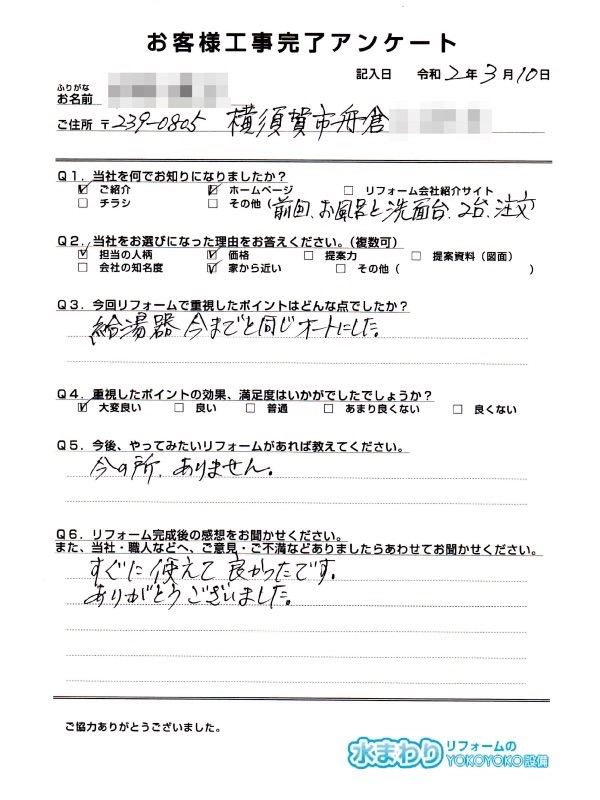 お客様工事完了アンケート
記入日 令和 2年 3月 10日
ふりがな
お名前
ご住所 〒239-0805 横須賀市舟倉
Q1. 当社を何でお知りになりましたか?
☑ ご紹介 ☑ ホームページ □ リフォーム会社紹介サイト
□ チラシ □ その他 (前回、お風呂と洗面台、2台、注文
Q2. 当社をお選びになった理由をお答えください。(複数可)
☑ 担当の人柄 ☑ 価格 □ 提案力 □ 提案資料(図面)
□ 会社の知名度 ☑ 家から近い □ その他 ( )
Q3. 今回リフォームで重視したポイントはどんな点でしたか?
給湯器 今までと同じオートにした。
Q4. 重視したポイントの効果、満足度はいかがでしたでしょうか?
☑ 大変良い □ 良い □ 普通 □ あまり良くない □ 良くない
Q5. 今後、やってみたいリフォームがあれば教えてください。
今の所、ありません。
Q6. リフォーム完成後の感想をお聞かせください。
また、当社・職人などへ、ご意見・ご不満などありましたらあわせてお聞かせください。
すぐに使えて良かったです。
ありがとうございました。
ご協力ありがとうございました。
水まわりリフォームの
YOKOYOKO設備